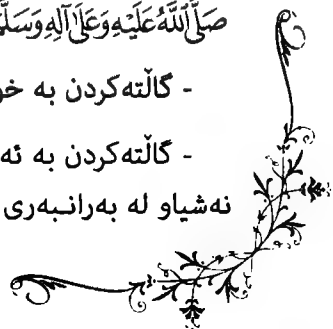 صَلَّى اللَّهُ عَلَيْهِ وَعَلَى آلِهِ وَسَلَّمَ
- گاڵتەکردن بە خو
- گاڵتەکردن بە ئە
نەشیاو لە بەرانـبەری